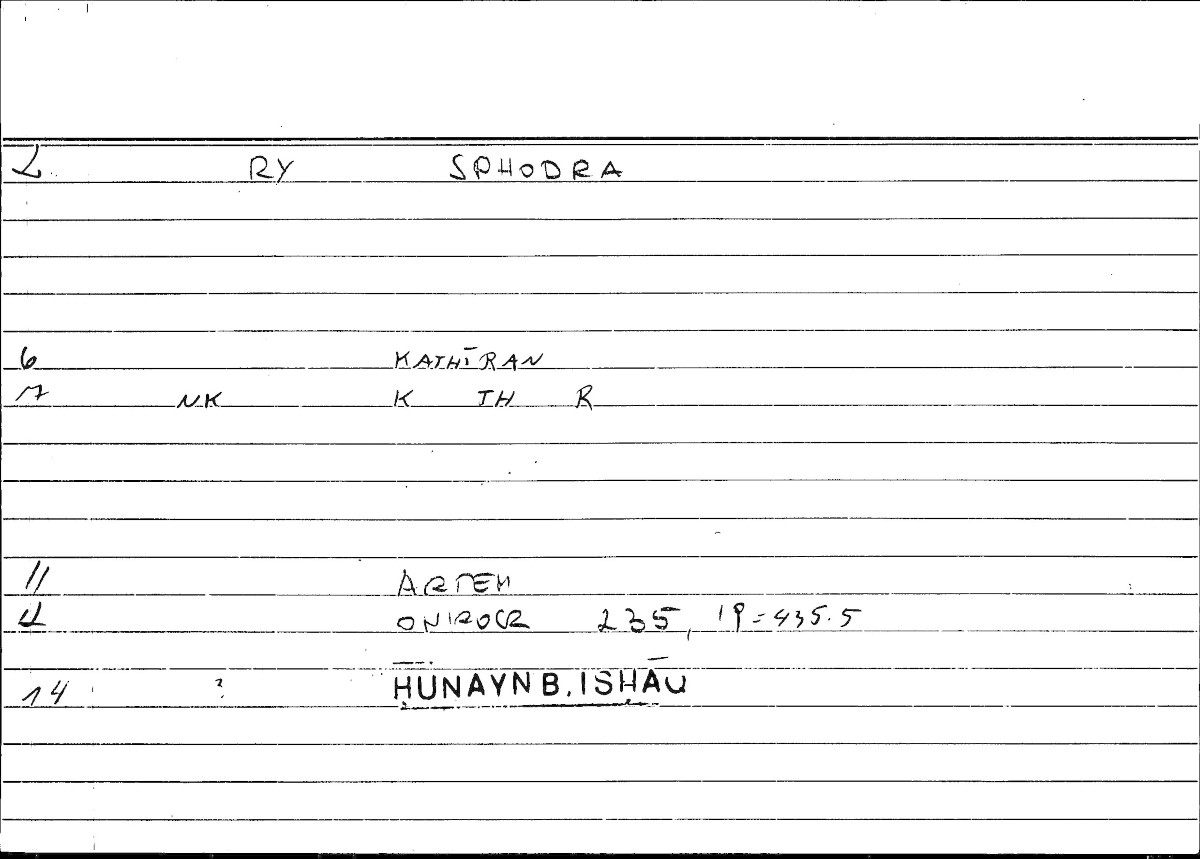 2 RY SPHODRA
6 KATHĪRAN
7 NK K TH R
11 ARTEM
12 ONIROCR 235, 19=435.5
14 ? ḤUNAYN B. ISḤĀQ